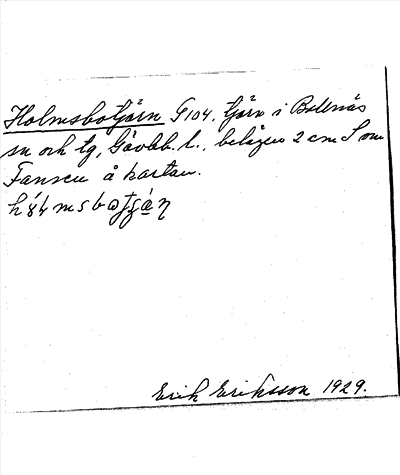 Holmsbotjärn G104. tjärn i Bollnäs
sn och tg, Gävleb. l., belägen 2 cm S om
Fansen å kartan.
Erik Eriksson 1929.